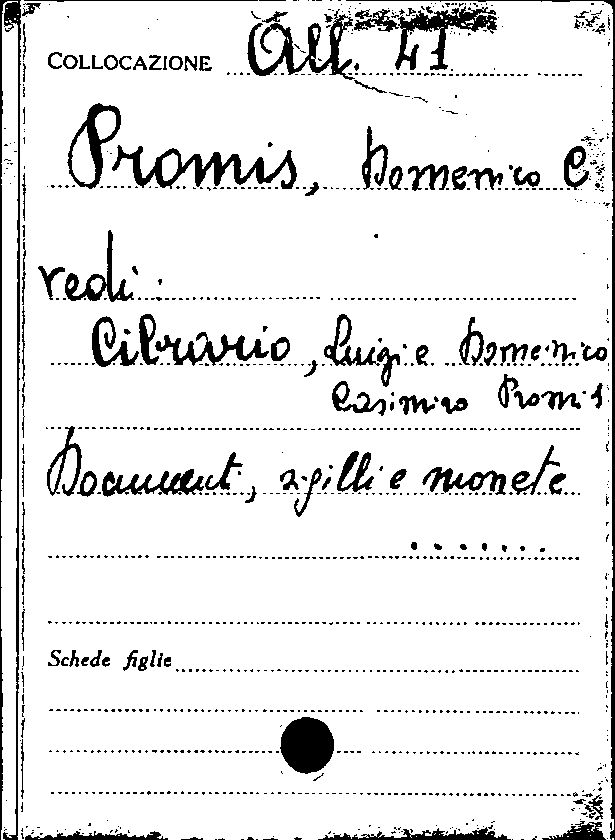 COLLOCAZIONE All. 41
Promis, Domenico C
vedi:
Cibrario, Luigi e Domenico
Casimiro Promis
Documenti, sigilli e monete
.......
Schede figlie